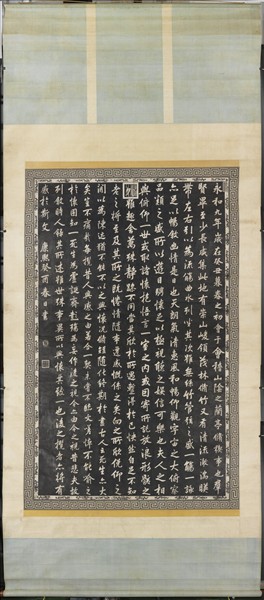 永和九年歲在癸丑暮春之初會于會稽山陰之蘭亭脩禊事也羣
賢畢至少長咸集此地有崇山峻領茂林脩竹又有清流激湍映
帶左右引以為流觴曲水列坐其次雖無絲竹管絃之盛一觴一詠
亦足以暢敘幽情是日也天朗氣清惠風和暢仰觀宇宙之大俯察
品類之盛所以遊目騁懷足以極視聽之娛信可樂也夫人之相
與俯仰一世或取諸懷抱悟言一室之內或因寄所託放浪形骸之
外雖趣舍萬殊靜躁不同當其欣於所遇暫得於己快然自足不知
老之將至及其所之既惓情隨事遷感慨係之矣向之所欣俛仰之
間以為陳迹猶不能不以之興懷況脩短隨化終期於盡古人云死生亦大
矣豈不痛哉每攬昔人興感之由若合一契未嘗不臨文嗟悼不能喻之
於懷固知一死生為虛誕齊彭殤為妄作後之視今亦由今之視昔悲夫故
列敘時人錄其所述雖世殊事異所以興懷其致一也後之攬者亦將有
感於斯文 康熙癸酉春日書